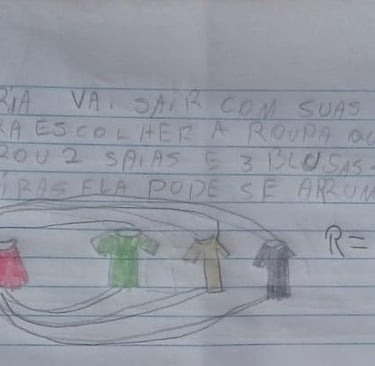 RIA VAI SAIR COM SUAS
RA ESCOLHER A ROUPA QU
ROU 2 SAIAS E 3 BLUSAS.
IRAS ELA PODE SE ARRUM
R=